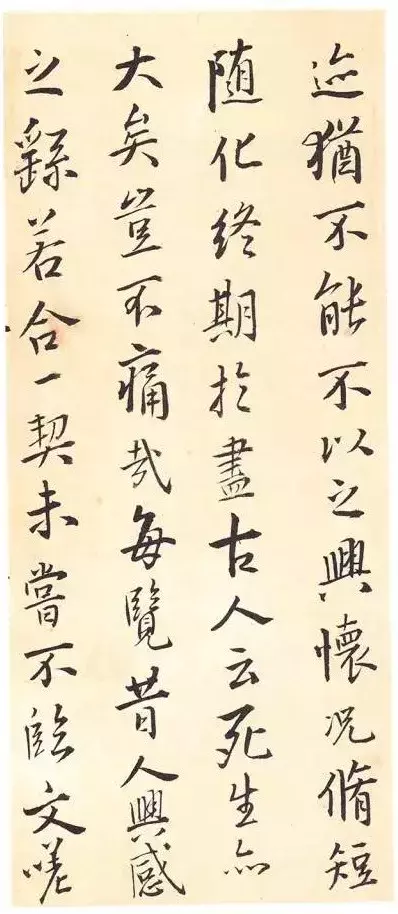 迹猶不能不以之興懷況脩短
隨化終期於盡古人云死生亦
大矣豈不痛哉每覽昔人興感
之繇若合一契未嘗不臨文嗟